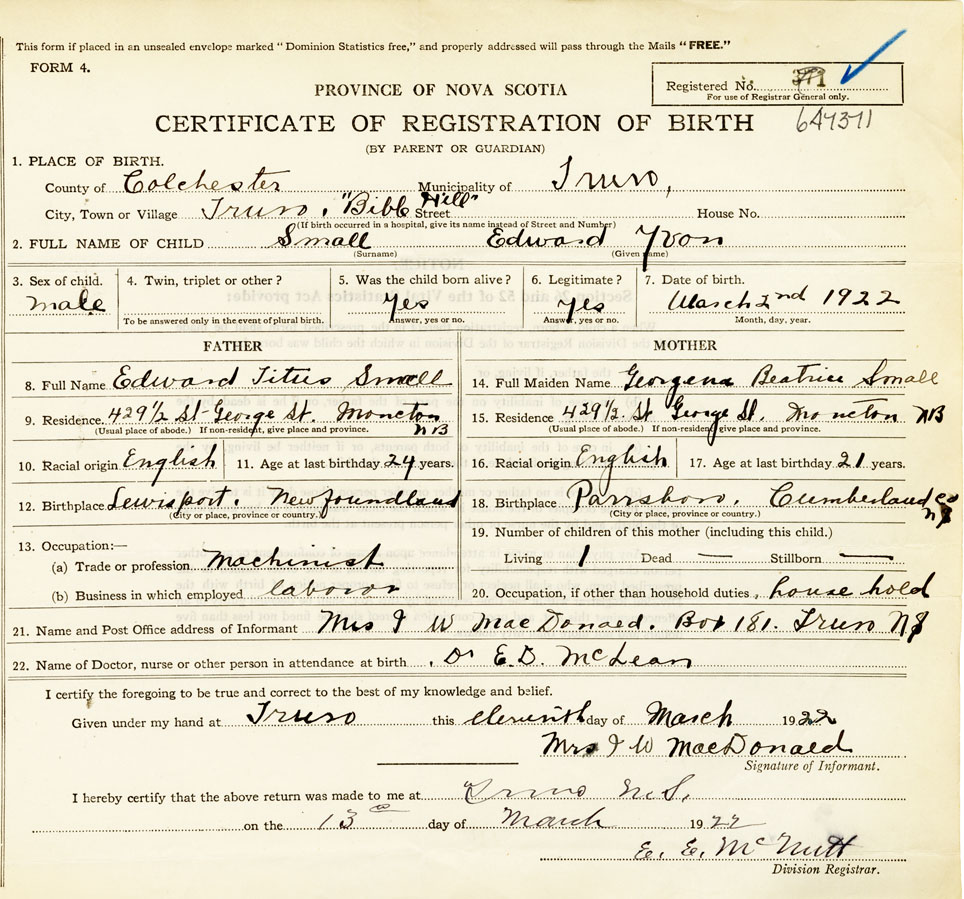 This form if placed in an unsealed envelope marked "Dominion Statistics free," and properly addressed will pass through the Mails "FREE."
FORM 4.
Registered No. 371
For use of Registrar General only.
PROVINCE OF NOVA SCOTIA
CERTIFICATE OF REGISTRATION OF BIRTH 647371
(BY PARENT OR GUARDIAN)
1. PLACE OF BIRTH.
County of Colchester Municipality of Truro,
City, Town or Village Truro. "Bible Hill" Street House No.
(If birth occurred in a hospital, give its name instead of Street and Number)
2. FULL NAME OF CHILD Small Edward Yvon
(Surname) (Given name)
3. Sex of child. 4. Twin, triplet or other? 5. Was the child born alive? 6. Legitimate? 7. Date of birth.
male yes yes March 2nd 1922
To be answered only in the event of plural birth. Answer, yes or no. Answer, yes or no. Month, day, year.
FATHER MOTHER
8. Full Name Edward Titus Small 14. Full Maiden Name Georgena Beatrice Small
9. Residence 429 1/2 St-George St. Moncton NB 15. Residence 429 1/2. St George St. Moncton NB
(Usual place of abode.) If non-resident, give place and province. (Usual place of abode.) If non-resident, give place and province.
10. Racial origin English 11. Age at last birthday 24 years. 16. Racial origin English 17. Age at last birthday 21 years.
12. Birthplace Lewisport. Newfoundland 18. Birthplace Parrsboro. Cumberland Co NS
(City or place, province or country.) (City or place, province or country.)
19. Number of children of this mother (including this child.)
13. Occupation:—
Living 1 Dead — Stillborn —
(a) Trade or profession Machinist
(b) Business in which employed laboror 20. Occupation, if other than household duties, house hold
21. Name and Post Office address of Informant Mrs I W MacDonald. Box 181. Truro NS
22. Name of Doctor, nurse or other person in attendance at birth Dr E.D. McLean
I certify the foregoing to be true and correct to the best of my knowledge and belief.
Given under my hand at Truro this eleventh day of March 1922
Mrs I W MacDonald
Signature of Informant.
I hereby certify that the above return was made to me at Truro N.S.
on the 13 day of March 1922
E. E. McNutt
Division Registrar.